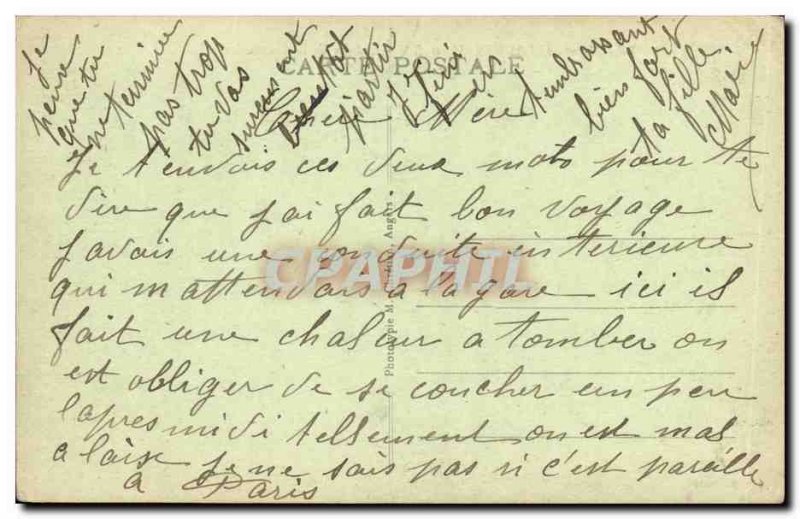 CARTE POSTALE
Chere Mère
Je t envois ces deux mots pour te
dire que j ai fait bon voyage
j avais une conduite interieure
qui m attendais a la gare ici il
fait une chaleur a tomber on
est obliger de se coucher un peu
l apres midi tellement on est mal
a laise je ne sais pas si c'est pareille
a Paris
Je
pense
que tu
ne t ennuie
pas trop
tu vas
surement
partir
Je
fini
en
t embrassant
bien fort
ta fille
Marie
Phototypie Angers
CPAPHIL